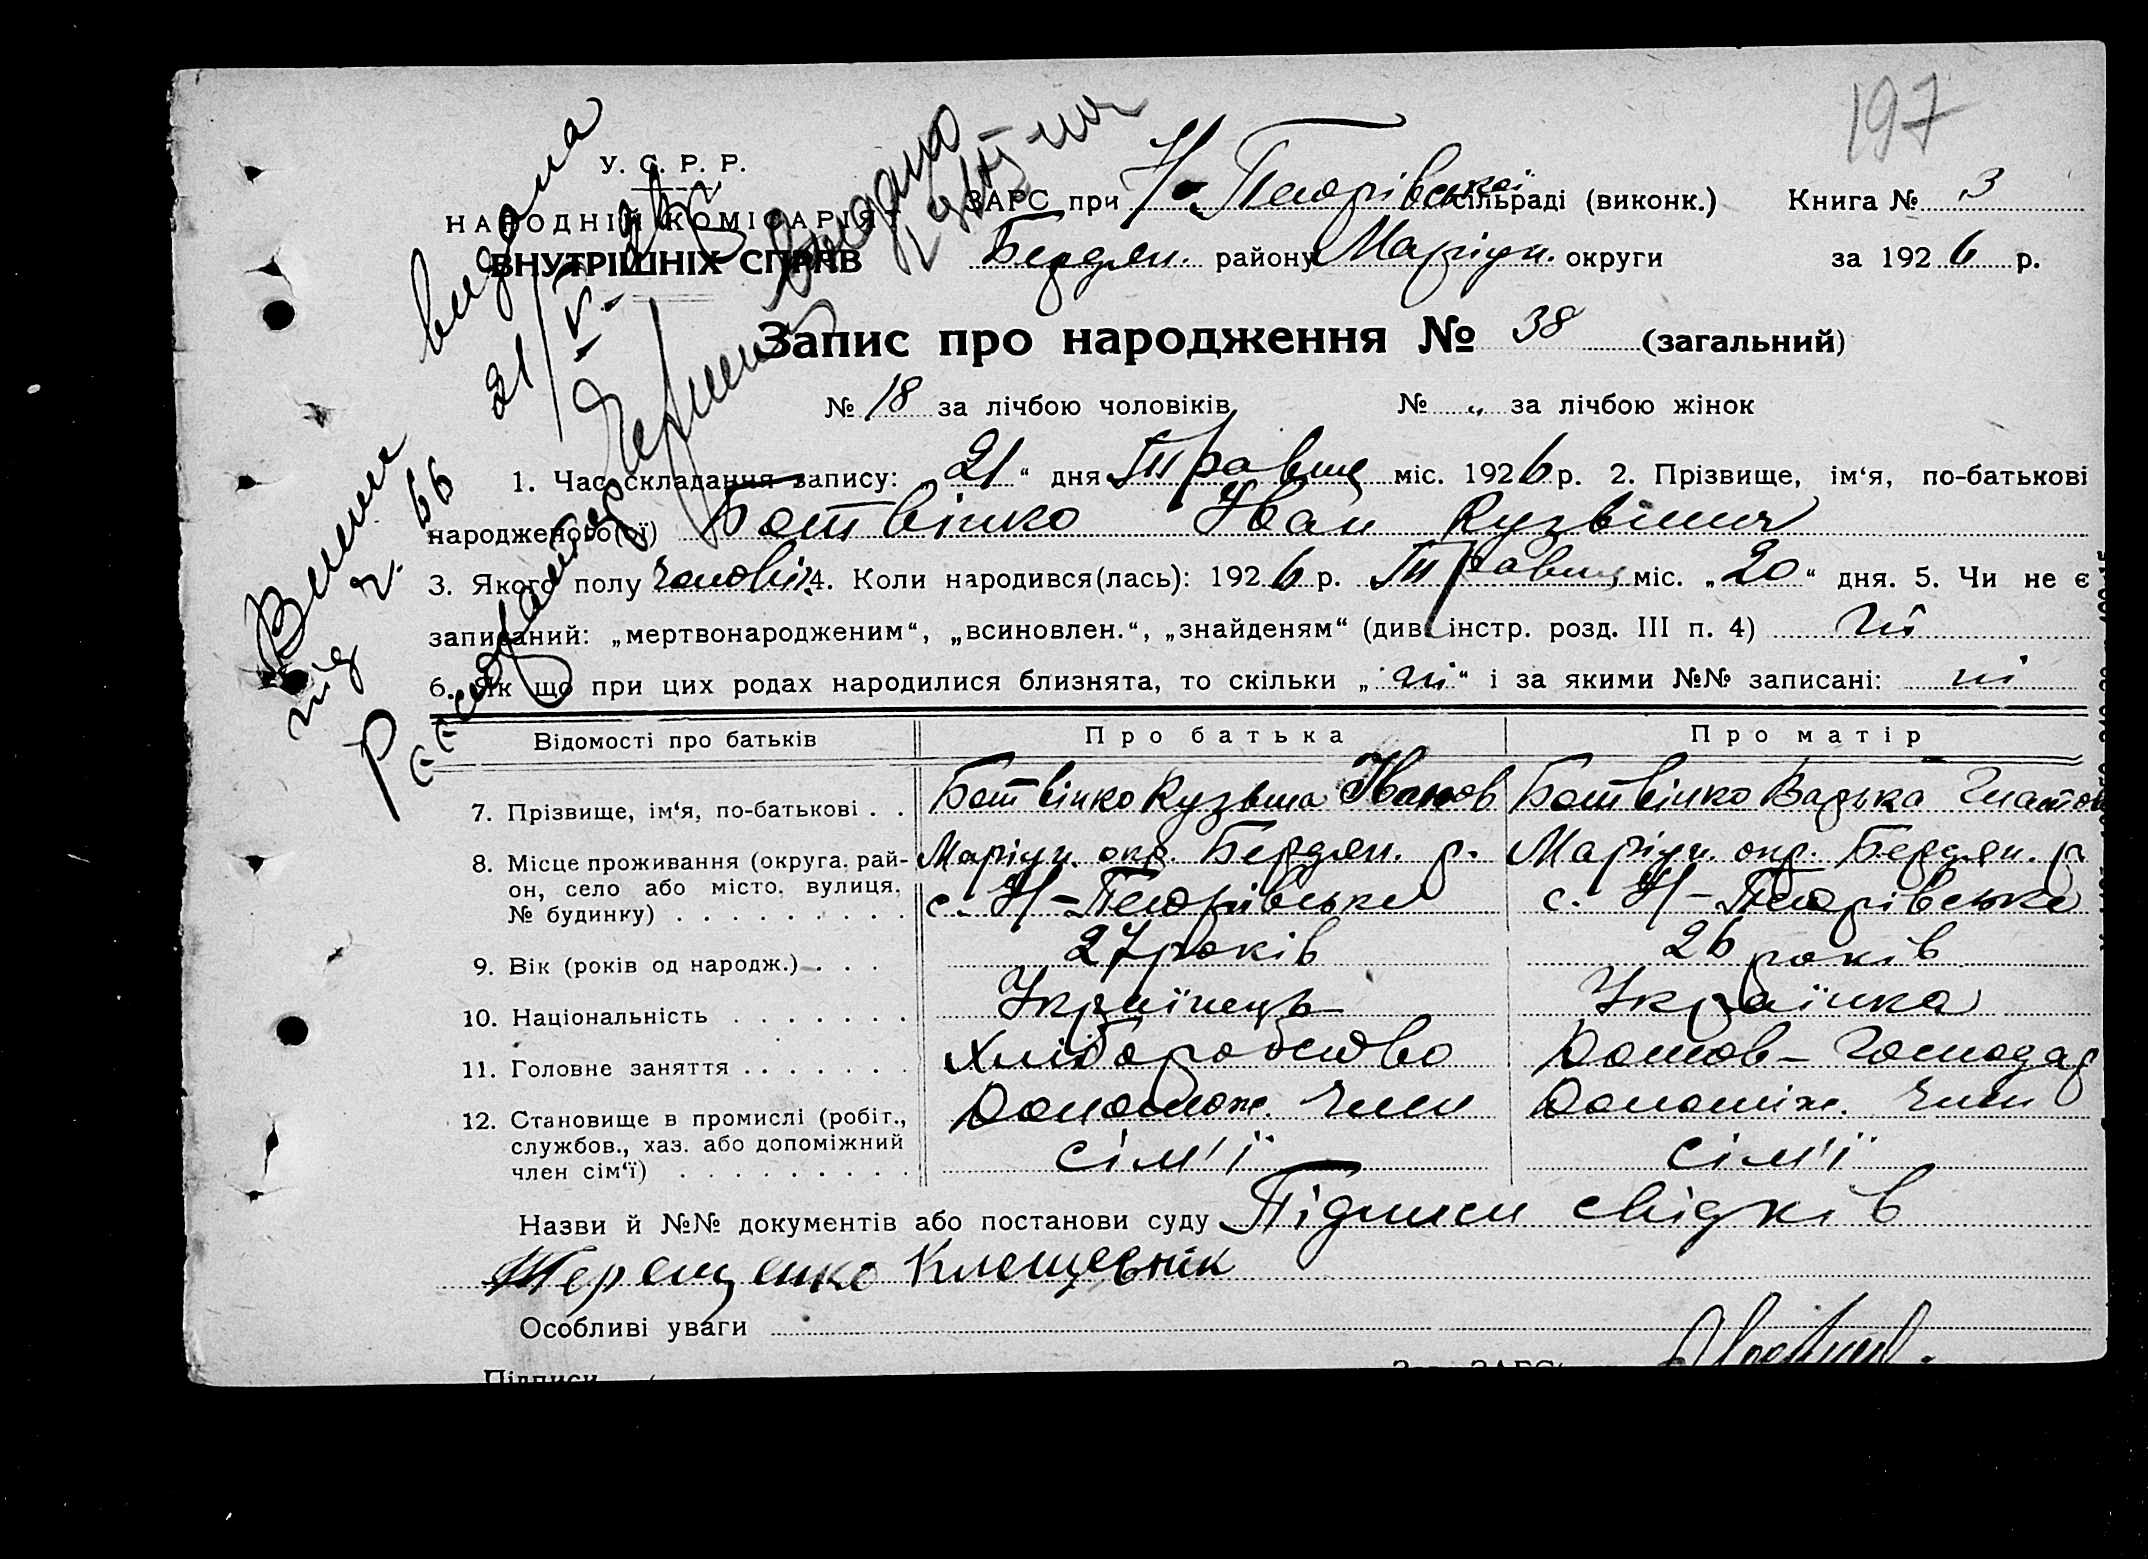 197
У. С. Р. Р.
НАРОДНІЙ КОМІСАРІЯТ
ВНУТРІШНІХ СПРАВ
ЗАРС при сільраді (виконк.) Книга № 3
Бердян. району Маріуп. округи за 1926 р.
Запис про народження № 38 (загальний)
№ 18 за лічбою чоловіків № „ за лічбою жінок
1. Час складання запису: „21“ дня Травня міс. 1926 р. 2. Прізвище, ім‘я, по-батькові
народженого(ої) Ботвінко Іван
3. Якого полу 4. Коли народився(лась): 1926 р. Травня міс. „20“ дня. 5. Чи не є
записаний: „мертвонародженим“, „всиновлен.“, „знайденям“ (див. інстр. розд. III п. 4) ні
6. Як що при цих родах народилися близнята, то скільки „ні“ і за якими №№ записані: ні
Відомості про батьків Про батька Про матір
7. Прізвище, ім‘я, по-батькові . . Ботвінко Кузьма Іванов Ботвінко
8. Місце проживання (округа, рай-
он, село або місто, вулиця,
№ будинку) . . . . . . . . .
Маріуп. окр. Бердян. р. Маріуп. окр. Бердян. р
9. Вік (років од народж.) . . . 27 років 26 років
10. Національність . . . . . . . Українець Українка
11. Головне заняття . . . . . . . Хліборобство Домов-Господар
12. Становище в промислі (робіт.,
службов., хаз. або допоміжний
член сім‘ї) . . . . . . . . .
Допомож. член Допоміж. член
сім'ї сім'ї
Назви й №№ документів або постанови суду Підписи свідків
Терещенко
Особливі уваги
Підписи
видана
21/V-26